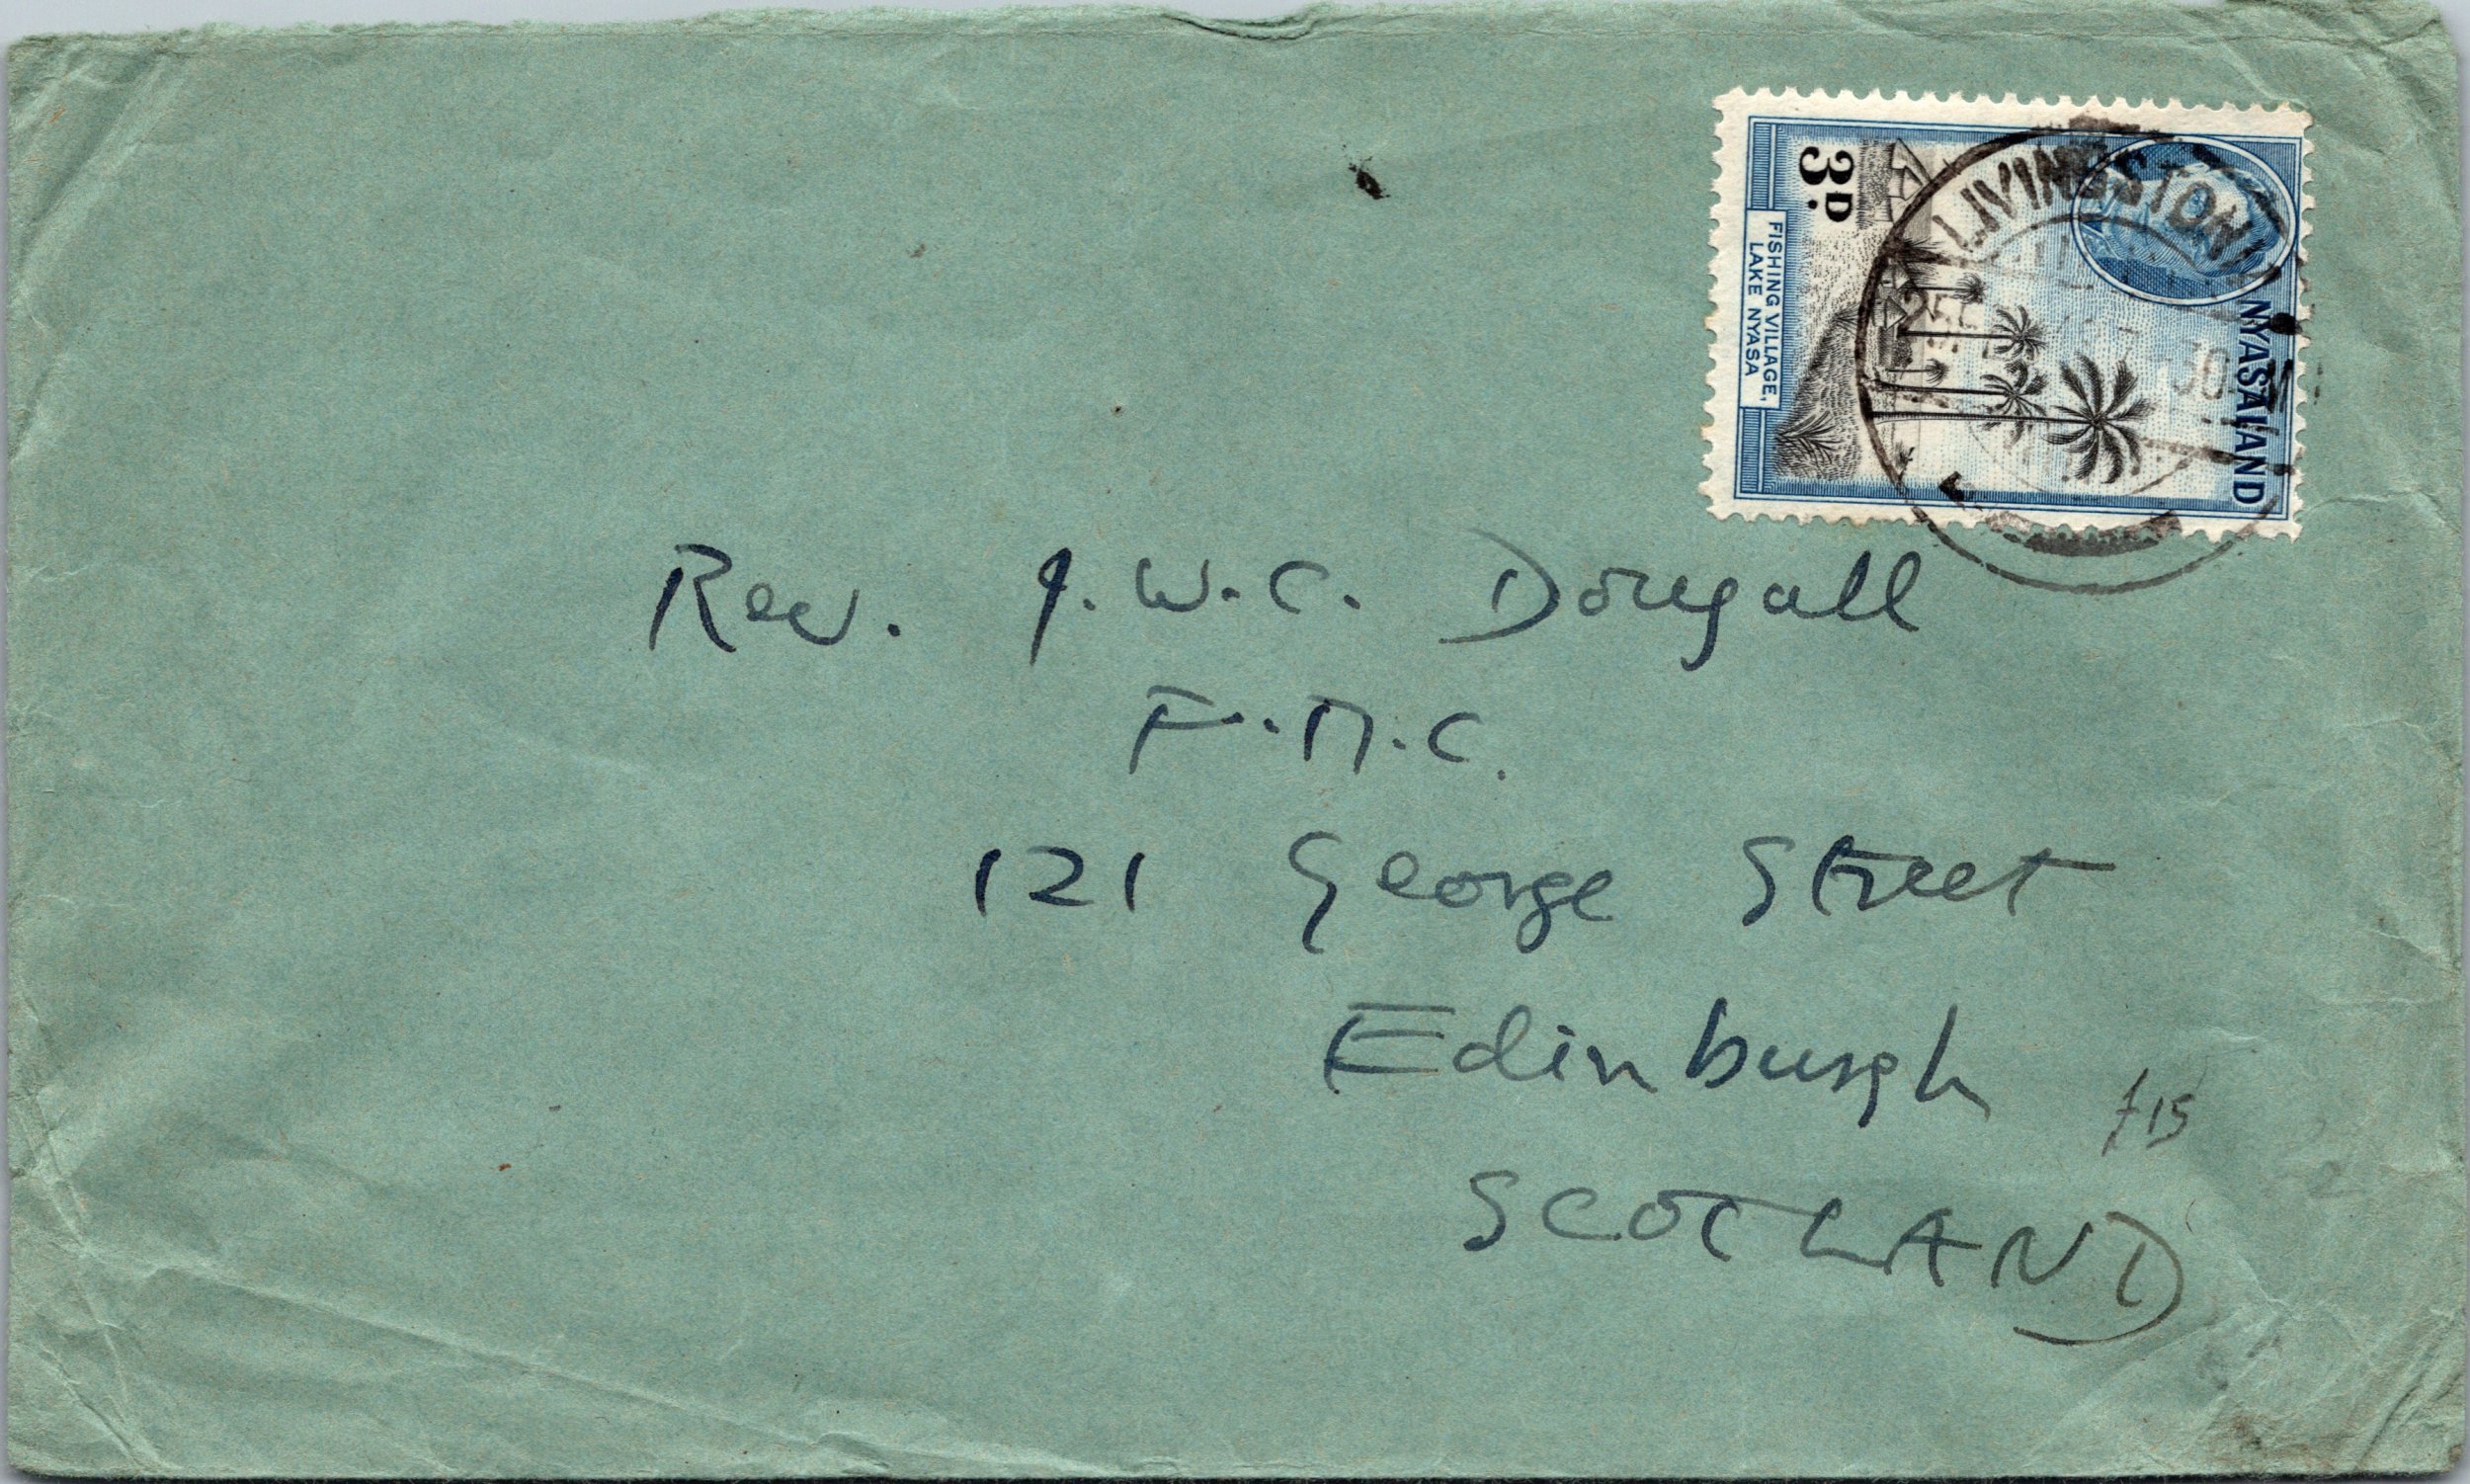 3D.
FISHING VILLAGE,
LAKE NYASA
NYASALAND
Rev. J.W.C. Dougall
F.M.C.
121 George Street
Edinburgh
£15
SCOTLAND